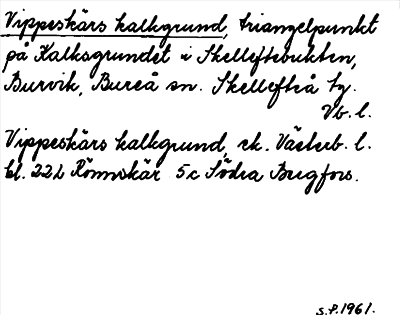 Vippeskärs kalkgrund, triangelpunkt
på Kalksgrundet i Skelleftebukten,
Burvik, Bureå sn. Skellefteå tg.
Vb. l.
Vippeskärs kalkgrund, ek. Västerb. l.
bl. 22L Rönnskär 5c Södra Bergfors.
S.P. 1961.